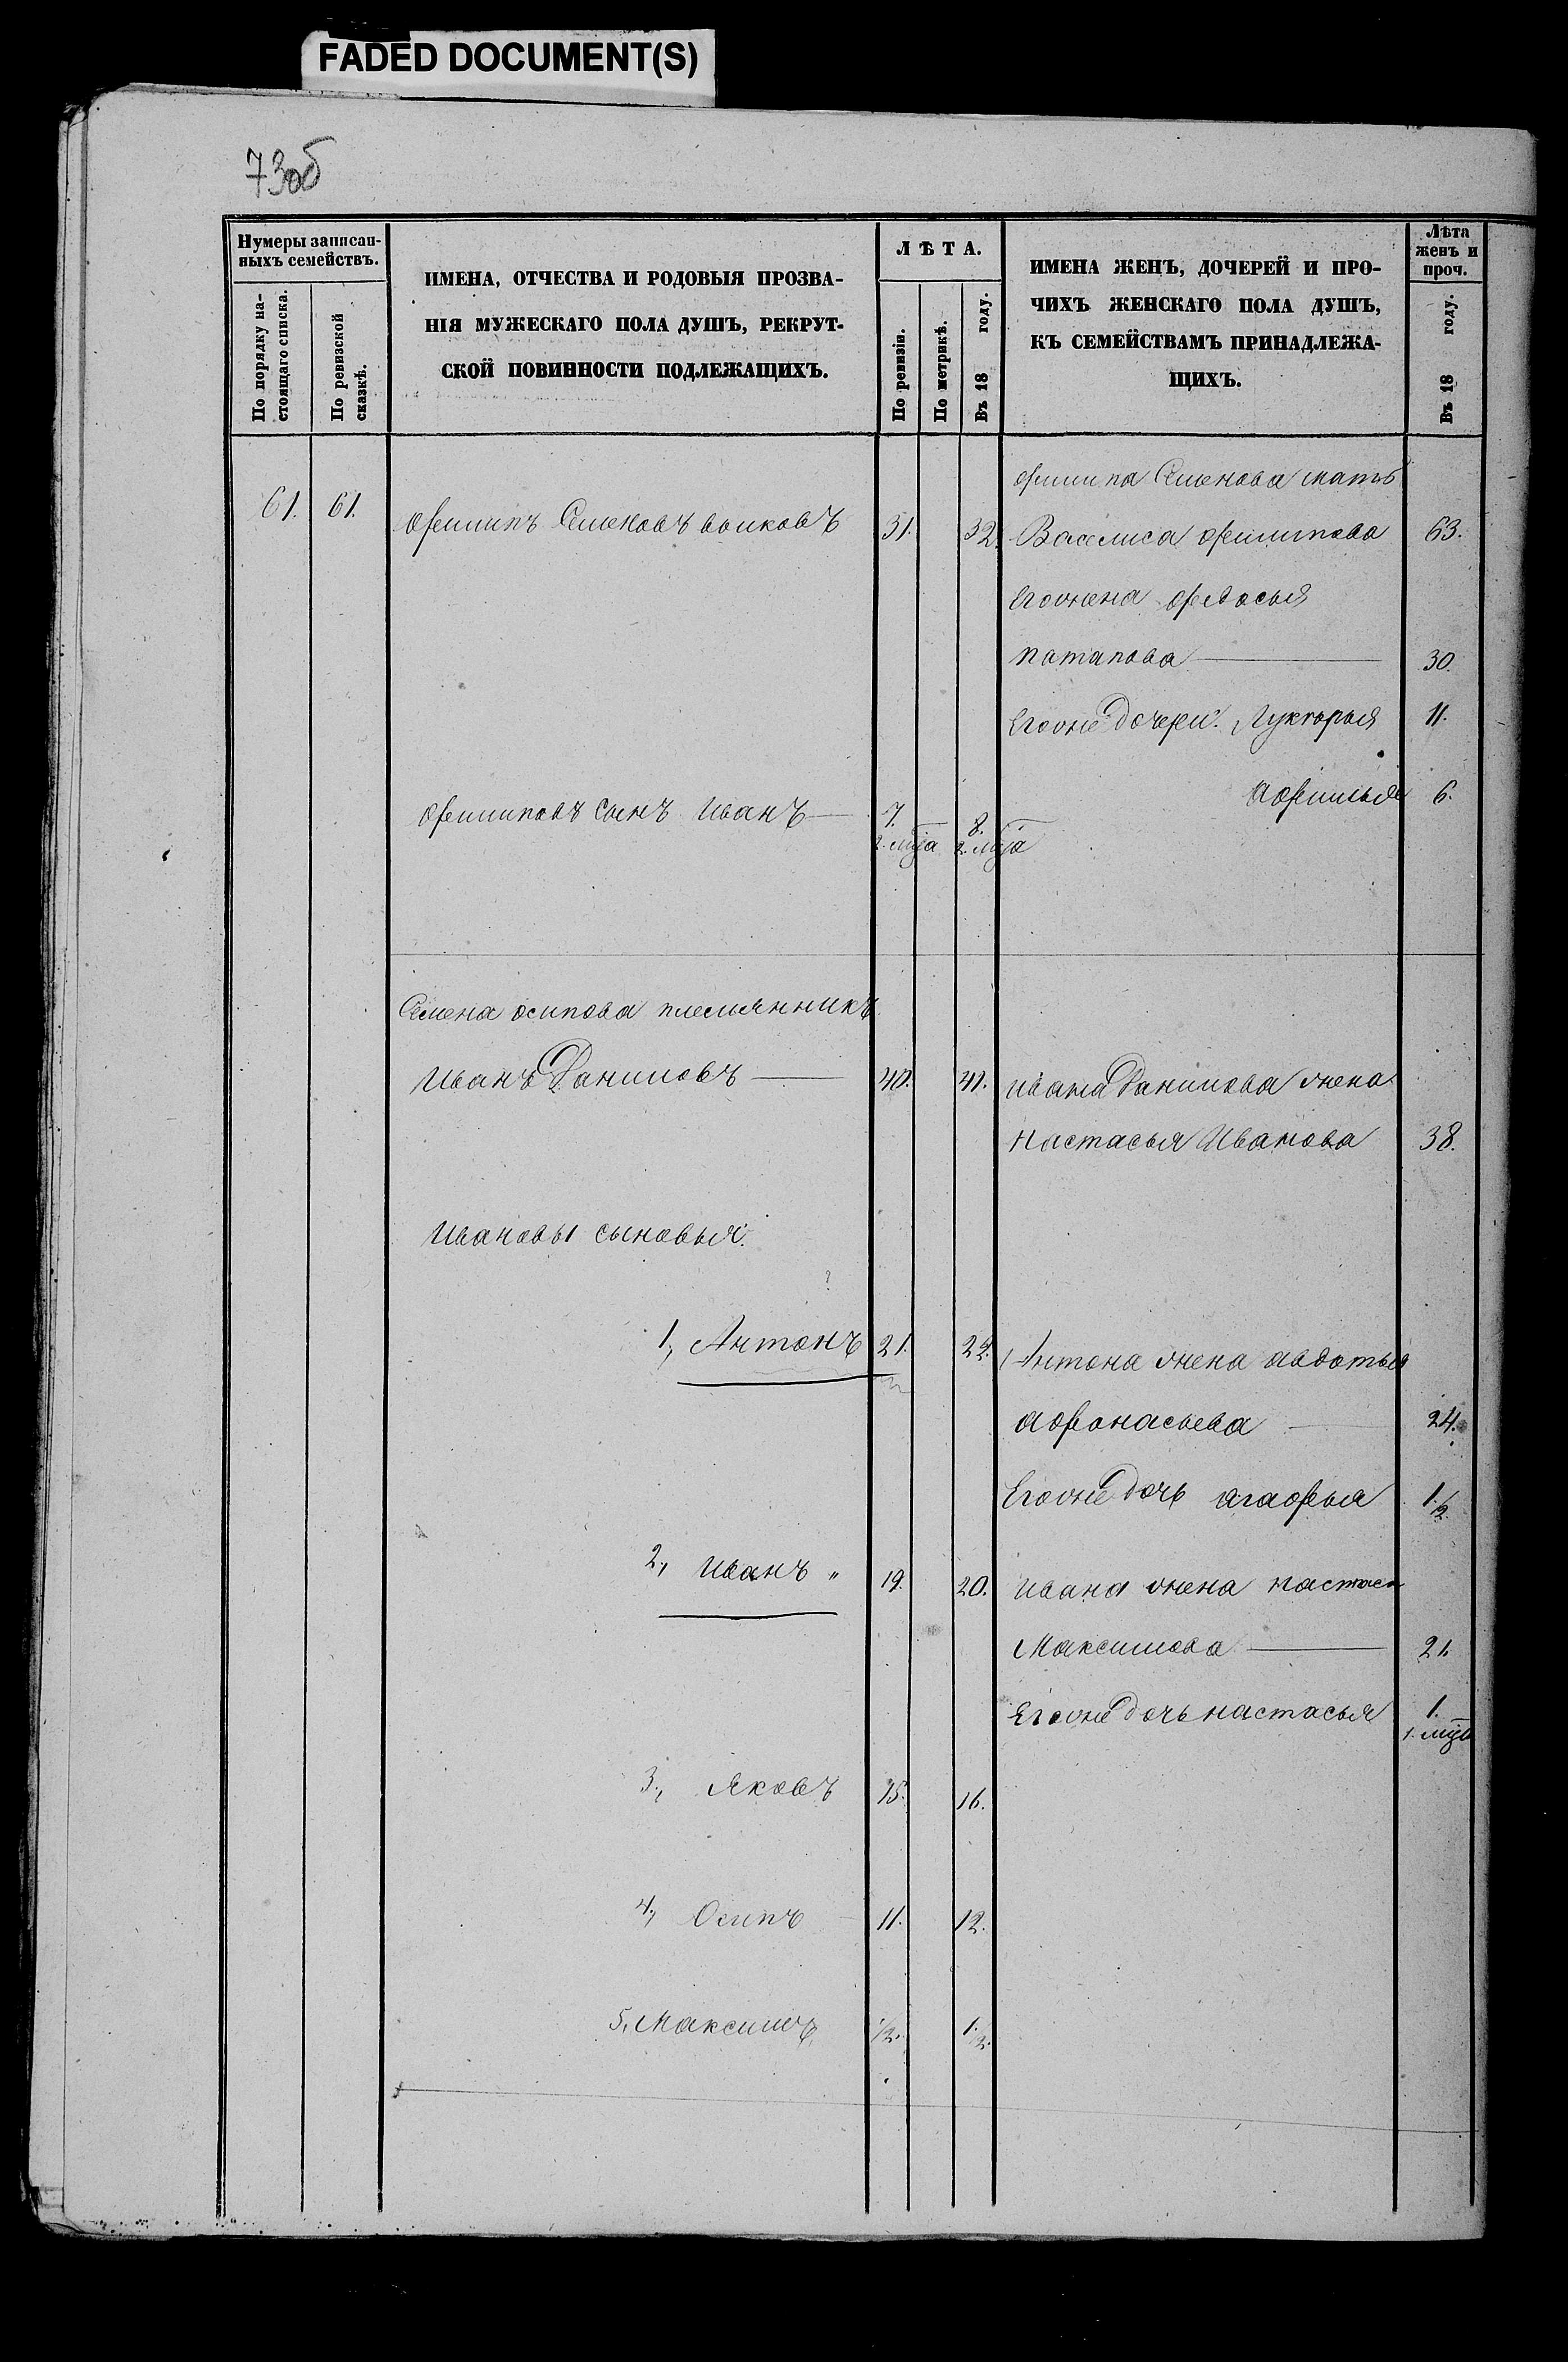 FADED DOCUMENT(S)
73об
Нумеры записан-
ныхъ семействъ.
По порядку на-
стоящаго списка.
По ревизской
сказкѣ.
ИМЕНА, ОТЧЕСТВА И РОДОВЫЯ ПРОЗВА-
НІЯ МУЖЕСКАГО ПОЛА ДУШЪ, РЕКРУТ-
СКОЙ ПОВИННОСТИ ПОДЛЕЖАЩИХЪ.
ЛѢТА.
По ревизіи.
По метрикѣ.
Въ 18 году.
ИМЕНА ЖЕНЪ, ДОЧЕРЕЙ И ПРО-
ЧИХЪ ЖЕНСКАГО ПОЛА ДУШЪ,
КЪ СЕМЕЙСТВАМЪ ПРИНАДЛЕЖА-
ЩИХЪ.
Лѣта
женъ и
проч.
Въ 18 году.
филипа Семенова мать
61. 61. филипъ Семеновъ волковъ 31. 32. Василиса филипова 63.
Егожена федосья
потапова 30.
Егоже дочери: Лукерья 11.
афимья 6.
филиповъ сынъ иванъ 7. 8.
2. мца 2. мца
Семена осипова племянникъ
иванъ Даниловъ 40. 41. ивана Данилова жена
настасья Иванова 38.
ивановы сыновья:
1, Антонъ 21. 22. Антона жена авдотья
афонасьева 24.
Егоже дочь агафья 1/2.
2, иванъ „ 19. 20. ивана жена настась
Максимова 21.
Егоже дочь настасья 1.
1. мцъ
3, яковъ 15. 16.
4, Осипъ 11. 12.
5. Максимъ 1/2. 1 1/2.